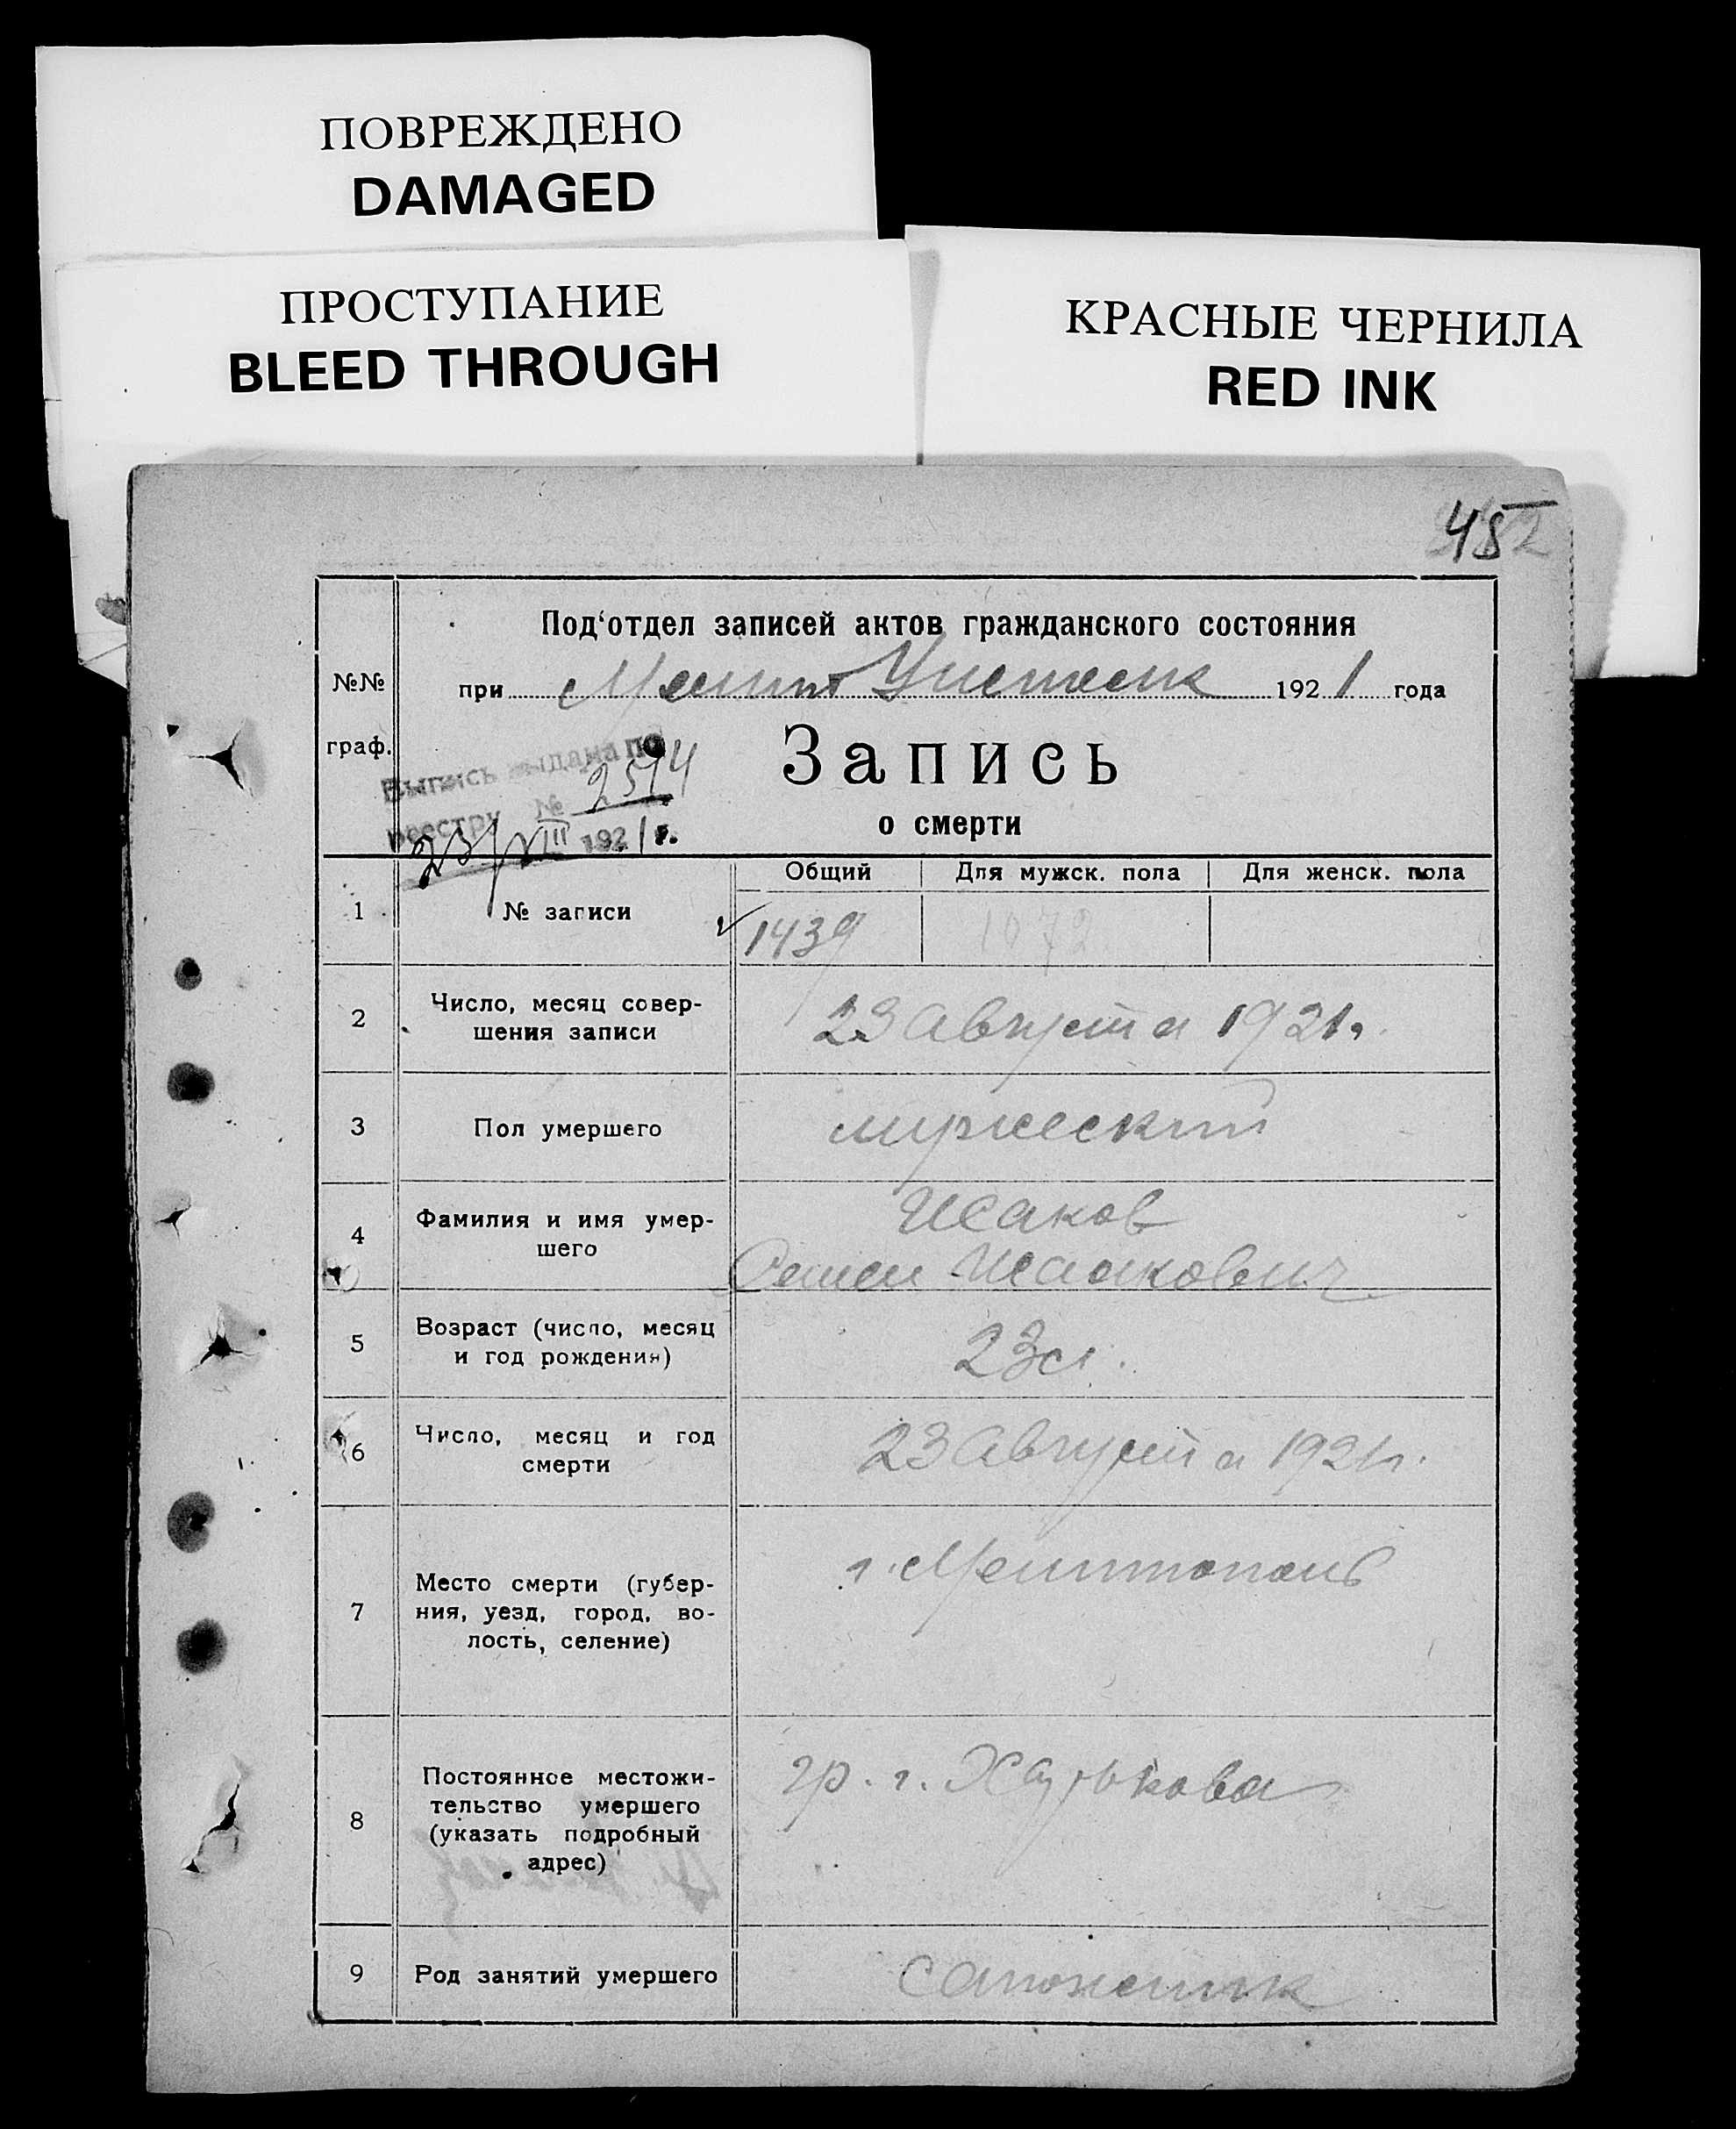 ПОВРЕЖДЕНО
DAMAGED
ПРОСТУПАНИЕ
BLEED THROUGH
КРАСНЫЕ ЧЕРНИЛА
RED INK
48
№№
граф.
Под‘отдел записей актов гражданского состояния
при Мелит 1921 года
Выпись выдана по
реестру № 2514
23/VIII 1921 г.
Запись
о смерти
Общий Для мужск. пола Для женск. пола
1 № записи 1439 1072
2 Число, месяц совер-
шения записи 23 Августа 1921г.
3 Пол умершего мужеский
4 Фамилия и имя умер-
шего Исаков
Семен Исаакович
5 Возраст (число, месяц
и год рождения) 23 л.
6 Число, месяц и год
смерти 23 Августа 1921г.
7 Место смерти (губер-
ния, уезд, город, во-
лость, селение) г. Мелитополь
8 Постоянное местожи-
тельство умершего
(указать подробный
адрес) гр. г. Харькова
9 Род занятий умершего сапожник